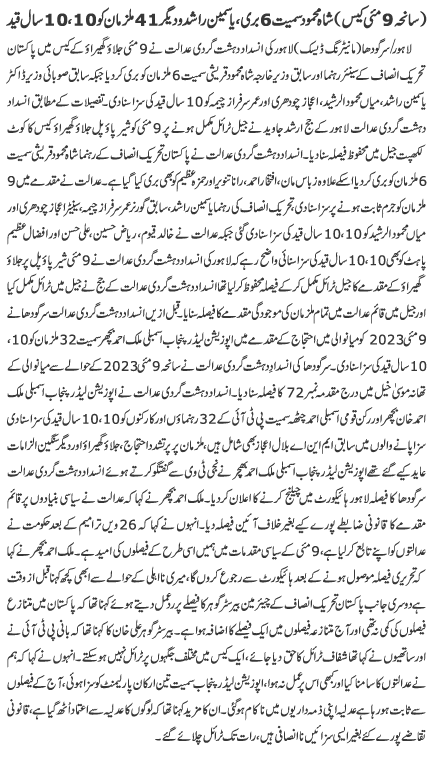 (سانحہ 9 مئی کیس) شاہ محمود سمیت 6 بری، یاسمین راشد و دیگر 41 ملزمان کو 10،10 سال قید
لاہور/سرگودھا (مانیٹرنگ ڈیسک) لاہور کی انسداد دہشت گردی عدالت نے 9 مئی جلاؤ گھیراؤ کے کیس میں پاکستان
تحریک انصاف کے سینئر رہنما اور سابق وزیر خارجہ شاہ محمود قریشی سمیت 6 ملزمان کو بری کر دیا جبکہ سابق صوبائی وزیر ڈاکٹر
یاسمین راشد، میاں محمود الرشید، اعجاز چودھری اور عمر سرفراز چیمہ کو 10 سال قید کی سزا سنا دی۔ تفصیلات کے مطابق انسداد
دہشت گردی عدالت لاہور کے جج ارشد جاوید نے جیل ٹرائل مکمل ہونے پر 9 مئی کو شیر پاؤ پل جلاؤ گھیراؤ کیس کا کوٹ
لکھپت جیل میں محفوظ فیصلہ سنا دیا۔ انسداد دہشت گردی عدالت نے پاکستان تحریک انصاف کے رہنما شاہ محمود قریشی سمیت
6 ملزمان کو بری کر دیا اسکے علاوہ زیاس مان، افتخار احمد، رانا تنویر اور حمزہ عظیم کو بھی بری کیا گیا ہے۔ عدالت نے مقدمے میں 9
ملزمان کو جرم ثابت ہونے پر سزا سنا دی، تحریک انصاف کی رہنما یاسمین راشد، سابق گورنر عمر سرفراز چیمہ، سینیٹر اعجاز چودھری اور
میاں محمود الرشید کو 10،10 سال قید کی سزا سنا دی گئی جبکہ عدالت نے خالد قیوم، ریاض حسین، علی حسن اور افضال عظیم
پاہٹ کو بھی 10،10 سال قید کی سزا سنائی واضح رہے کہ لاہور کی انسداد دہشت گردی عدالت نے 9 مئی شیر پاؤ پل پر جلاؤ
گھیراؤ کے مقدمے کا جیل ٹرائل مکمل کر کے فیصلہ محفوظ کر لیا تھا انسداد دہشت گردی عدالت کے جج نے جیل میں ٹرائل مکمل کیا
اور جیل میں قائم عدالت میں تمام ملزمان کی موجودگی مقدمہ کا فیصلہ سنایا۔ قبل ازیں انسداد دہشت گردی عدالت سرگودھا نے
9 مئی 2023 کو میانوالی میں احتجاج کے مقدمے میں اپوزیشن لیڈر پنجاب اسمبلی ملک احمد بھچر سمیت 32 ملزمان کو 10،
10 سال قید کی سزا سنا دی۔ سرگودھا کی انسداد دہشت گردی عدالت نے سانحہ 9 مئی 2023 کے حوالے سے میانوالی کے
تھانہ موسیٰ خیل میں درج مقدمہ نمبر 72 کا فیصلہ سنا دیا۔ انسداد دہشت گردی عدالت نے اپوزیشن لیڈر پنجاب اسمبلی ملک
احمد خان بھچر اور رکن قومی اسمبلی احمد چٹھہ سمیت پی ٹی آئی کے 32 رہنماؤں اور کارکنوں کو 10،10 سال قید کی سزا سنا دی
سزا پانے والوں میں سابق ایم این اے بلال اعجاز بھی شامل ہیں، ملزمان پر پر تشدد احتجاج، جلاؤ گھیراؤ اور دیگر سنگین الزامات
عاید کیے گئے تھے اپوزیشن لیڈر پنجاب اسمبلی ملک احمد بھچر نے نجی ٹی وی سے گفتگو کرتے ہوئے انسداد دہشت گردی عدالت
سرگودھا کا فیصلہ لاہور ہائیکورٹ میں چیلنج کرنے کا اعلان کر دیا۔ ملک احمد بھچر نے کہا کہ عدالت نے سیاسی بنیادوں پر قائم
مقدمے کا قانونی ضابطے پورے کیے بغیر خلاف آئین فیصلہ دیا۔ انہوں نے کہا کہ 26 ویں ترامیم کے بعد حکومت نے
عدالتوں کو اپنے تابع کر لیا ہے، 9 مئی کے سیاسی مقدمات میں ہمیں اسی طرح کے فیصلوں کی امید ہے۔ ملک احمد بھچر نے کہا
کہ تحریری فیصلہ موصول ہونے کے بعد ہائیکورٹ سے رجوع کروں گا، میری نااہلی کے حوالے سے ابھی کچھ کہنا قبل از وقت
ہے دوسری جانب پاکستان تحریک انصاف کے چیئرمین بیرسٹر گوہر کا فیصلے پر رد عمل دیتے ہوئے کہنا تھا کہ پاکستان میں متنازع
فیصلوں کی کمی نہ تھی اور آج متنازعہ فیصلوں میں ایک فیصلے کا اضافہ ہوا ہے۔ بیرسٹر گوہر علی خان کا کہنا تھا کہ بانی پی ٹی آئی نے
اور ساتھیوں نے کہا تھا شفاف ٹرائل کا حق دیا جائے، ایک کیس میں مختلف جگہوں پر ٹرائل نہیں ہو سکتے۔ انہوں نے کہا کہ ہم
نے عدالتوں کا سامنا کیا اور کبھی اس پر عمل نہ ہوا، اپوزیشن لیڈر پنجاب سمیت تین ارکان پارلیمنٹ کو سزا ہوئی، آج کے فیصلوں
سے ثابت ہو رہا ہے عدلیہ اپنی ذمہ داریوں میں ناکام ہو گئی۔ ان کا مزید کہنا تھا کہ لوگوں کا عدلیہ سے اعتماد اُٹھ گیا ہے، قانونی
تقاضے پورے کئے بغیر ایسی سزائیں نا انصافی ہیں، رات تک ٹرائل چلائے گئے۔